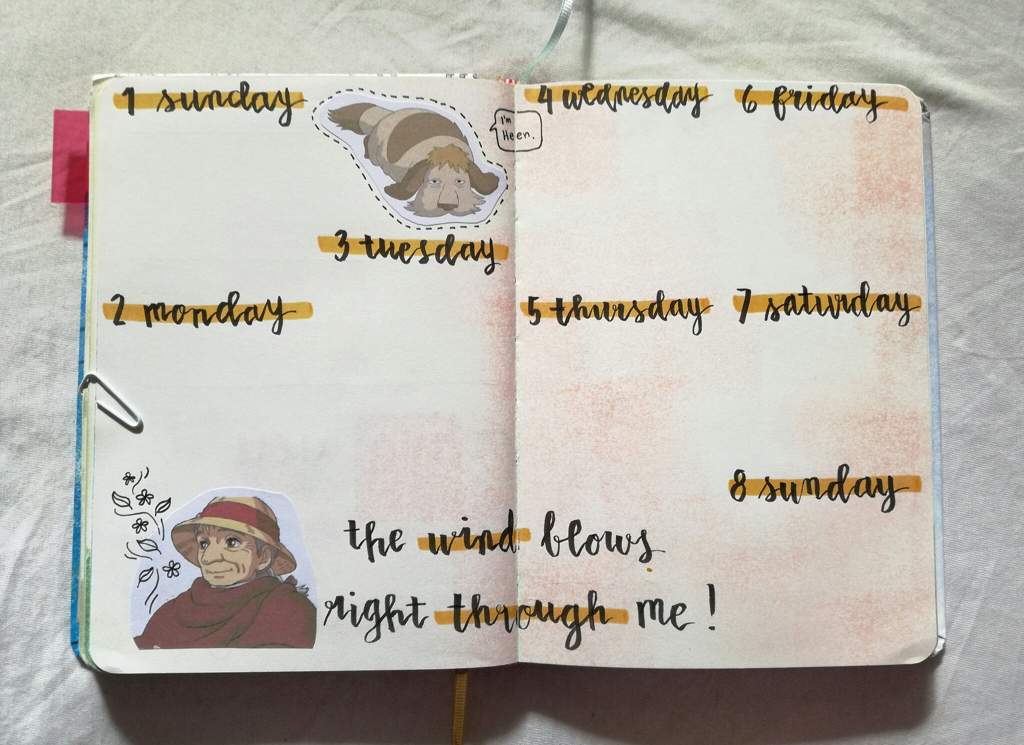 1 sunday
I'm
Heen.
3 tuesday
2 monday
4 wednesday
6 friday
5 thursday
7 saturday
8 sunday
the wind blows
right through me!